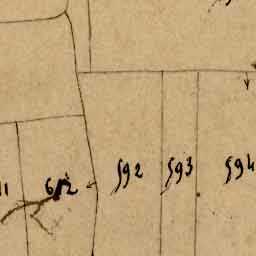 612 592 593 594